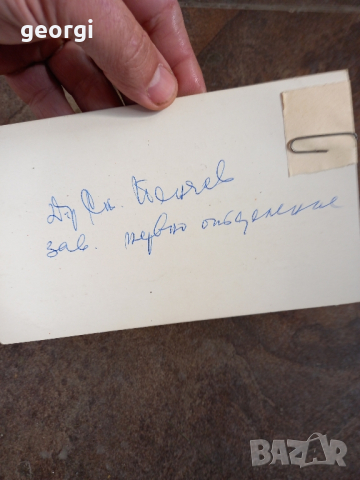 georgi
Др Сп. Пенчев
зав. нервно отделение
BAZAR